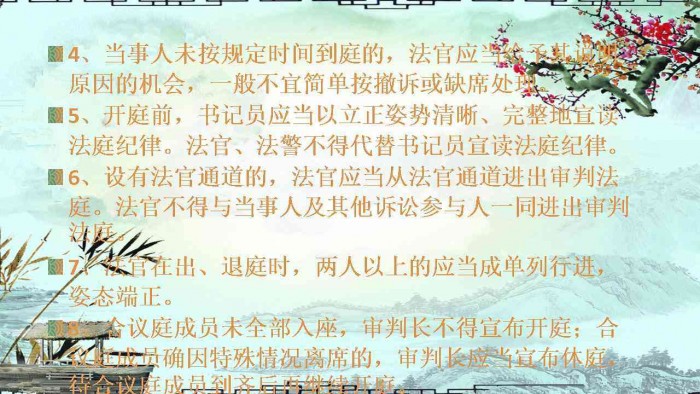 4、当事人未按规定时间到庭的，法官应当给予其说明
原因的机会，一般不宜简单按撤诉或缺席处理。
5、开庭前，书记员应当以立正姿势清晰、完整地宣读
法庭纪律。法官、法警不得代替书记员宣读法庭纪律。
6、设有法官通道的，法官应当从法官通道进出审判法
庭。法官不得与当事人及其他诉讼参与人一同进出审判
法庭。
7、法官在出、退庭时，两人以上的应当成单列行进，
姿态端正。
8、合议庭成员未全部入座，审判长不得宣布开庭；合
议庭成员确因特殊情况离席的，审判长应当宣布休庭，
待合议庭成员到齐后再继续开庭。